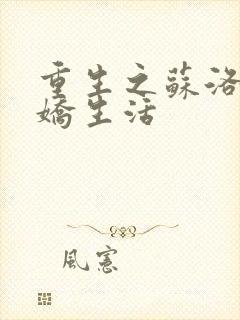 重生之蘇洛
嬌生活
風憲